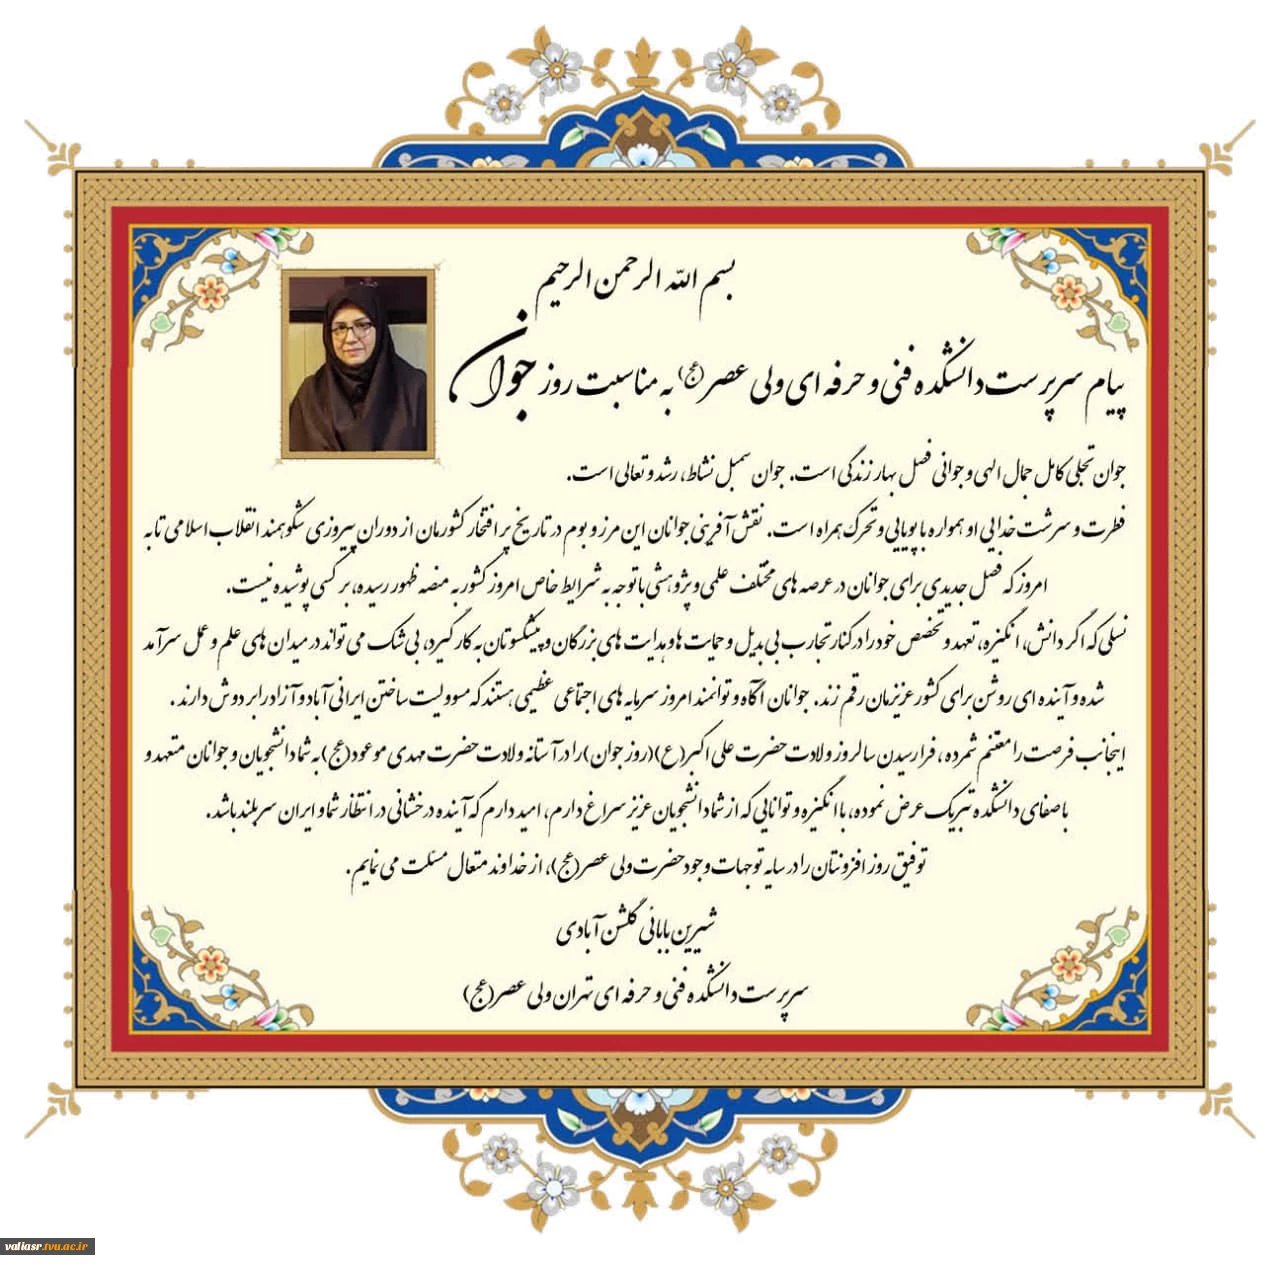 بسم الله الرحمن الرحیم
پیام سرپرست دانشکده فنی و حرفه ای ولی عصر(عج) به مناسبت روز جوان
جوان تجلی کامل جمال الهی و جوانی فصل بهار زندگی است. جوان سمبل نشاط، رشد و تعالی است.
فطرت و سرشت خدایی او همواره با پویایی و تحرک همراه است. نقش آفرینی جوانان این مرز و بوم در تاریخ پر افتخار کشورمان از دوران پیروزی شکوهمند انقلاب اسلامی تا به
امروز که فصل جدیدی برای جوانان در عرصه های مختلف علمی و پژوهشی با توجه به شرایط خاص امروز کشور به منصه ظهور رسیده، بر کسی پوشیده نیست.
نسلی که اگر دانش، انگیزه، تعهد و تخصص خود را در کنار تجارب بی بدیل و حمایت ها و هدایت های بزرگان و پیشکسوتان به کار گیرد، بی شک می تواند در میدان های علم و عمل سرآمد
شده و آینده ای روشن برای کشور عزیزمان رقم زند. جوانان آگاه و توانمند امروز سرمایه های اجتماعی عظیمی هستند که مسوولیت ساختن ایرانی آباد و آزاد را بر دوش دارند .
اینجانب فرصت را مغتنم شمرده ، فرارسیدن سالروز ولادت حضرت علی اکبر(ع)(روز جوان)را در آستانه ولادت حضرت مهدی موعود(عج)به شما دانشجویان و جوانان متعهد و
باصفای دانشکده تبریک عرض نموده، با انگیزه و توانایی که از شما دانشجویان عزیز سراغ دارم ، امید دارم که آینده درخشانی در انتظار شما و ایران سربلند باشد.
توفیق روز افزونتان را در سایه توجهات وجود حضرت ولی عصر(عج)، از خداوند متعال مسئلت می نمایم.
شیرین بابائی گلشن آبادی
سرپرست دانشکده فنی و حرفه ای تهران ولی عصر(عج)
valiasr.tvu.ac.ir